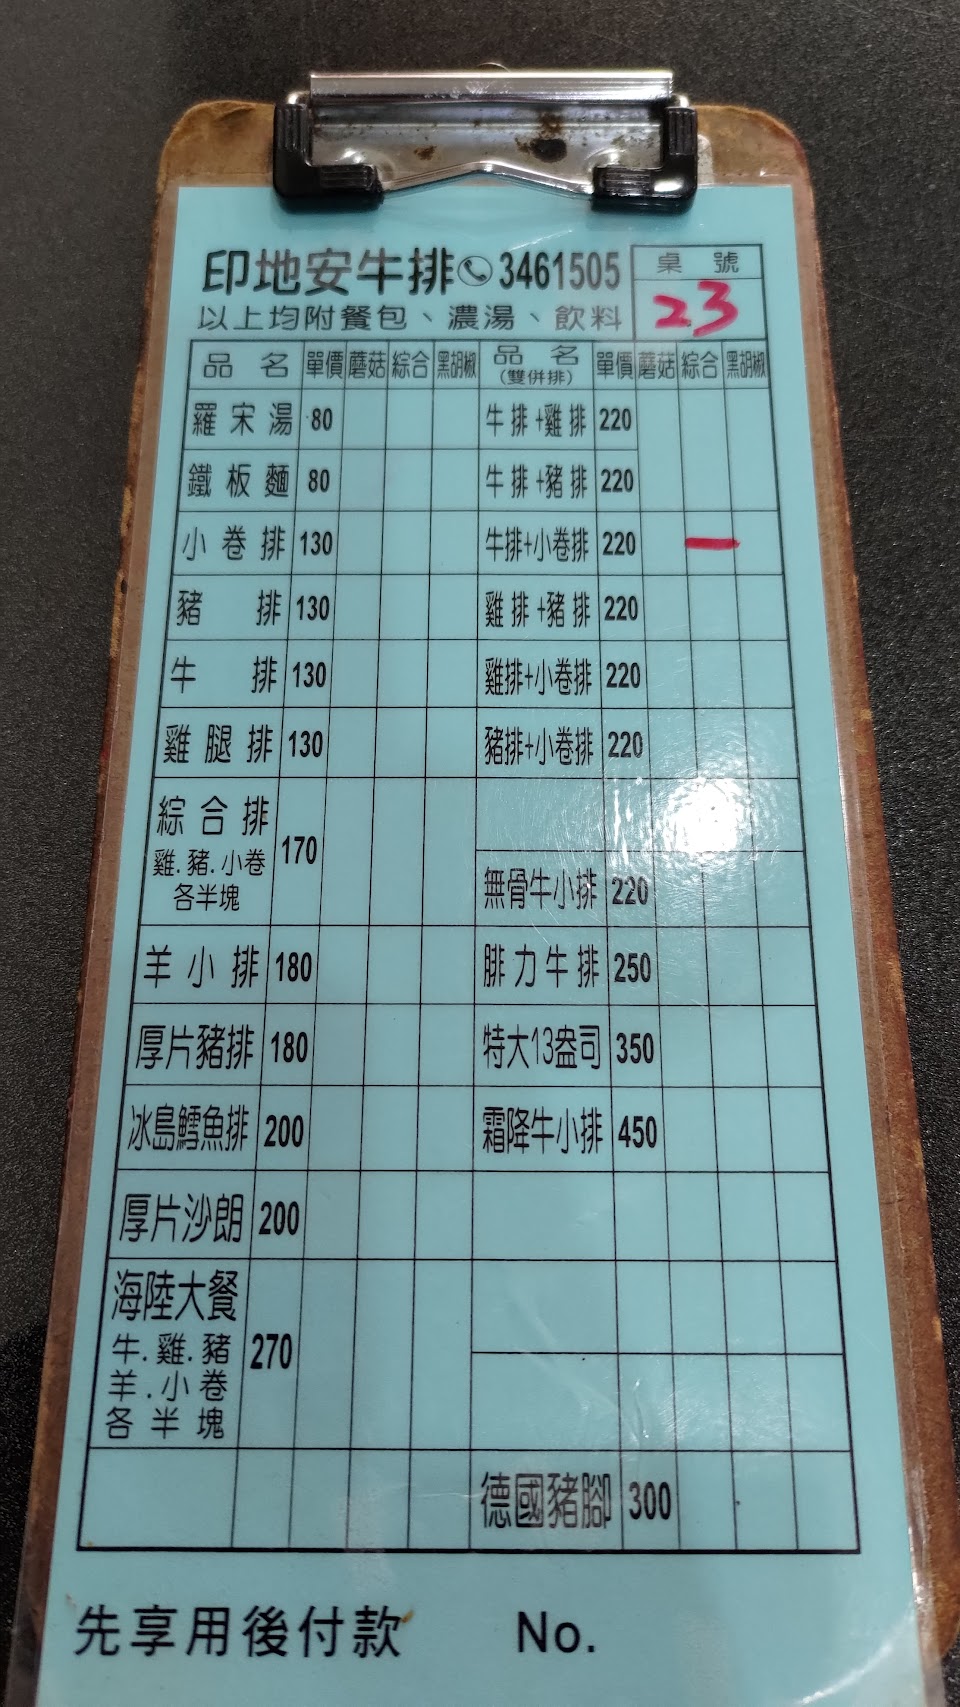 印地安牛排 3461505
桌號
23
以上均附餐包、濃湯、飲料
品名 單價 蘑菇 綜合 黑胡椒 品名(雙併排) 單價 蘑菇 綜合 黑胡椒
羅宋湯 80 牛排+雞排 220
鐵板麵 80 牛排+豬排 220
小卷排 130 牛排+小卷排 220 一
豬排 130 雞排+豬排 220
牛排 130 雞排+小卷排 220
雞腿排 130 豬排+小卷排 220
綜合排 170
雞.豬.小卷
各半塊
無骨牛小排 220
羊小排 180 腓力牛排 250
厚片豬排 180 特大13盎司 350
冰島鱈魚排 200 霜降牛小排 450
厚片沙朗 200
海陸大餐 270
牛.雞.豬
羊.小卷
各半塊
德國豬腳 300
先享用後付款 No.